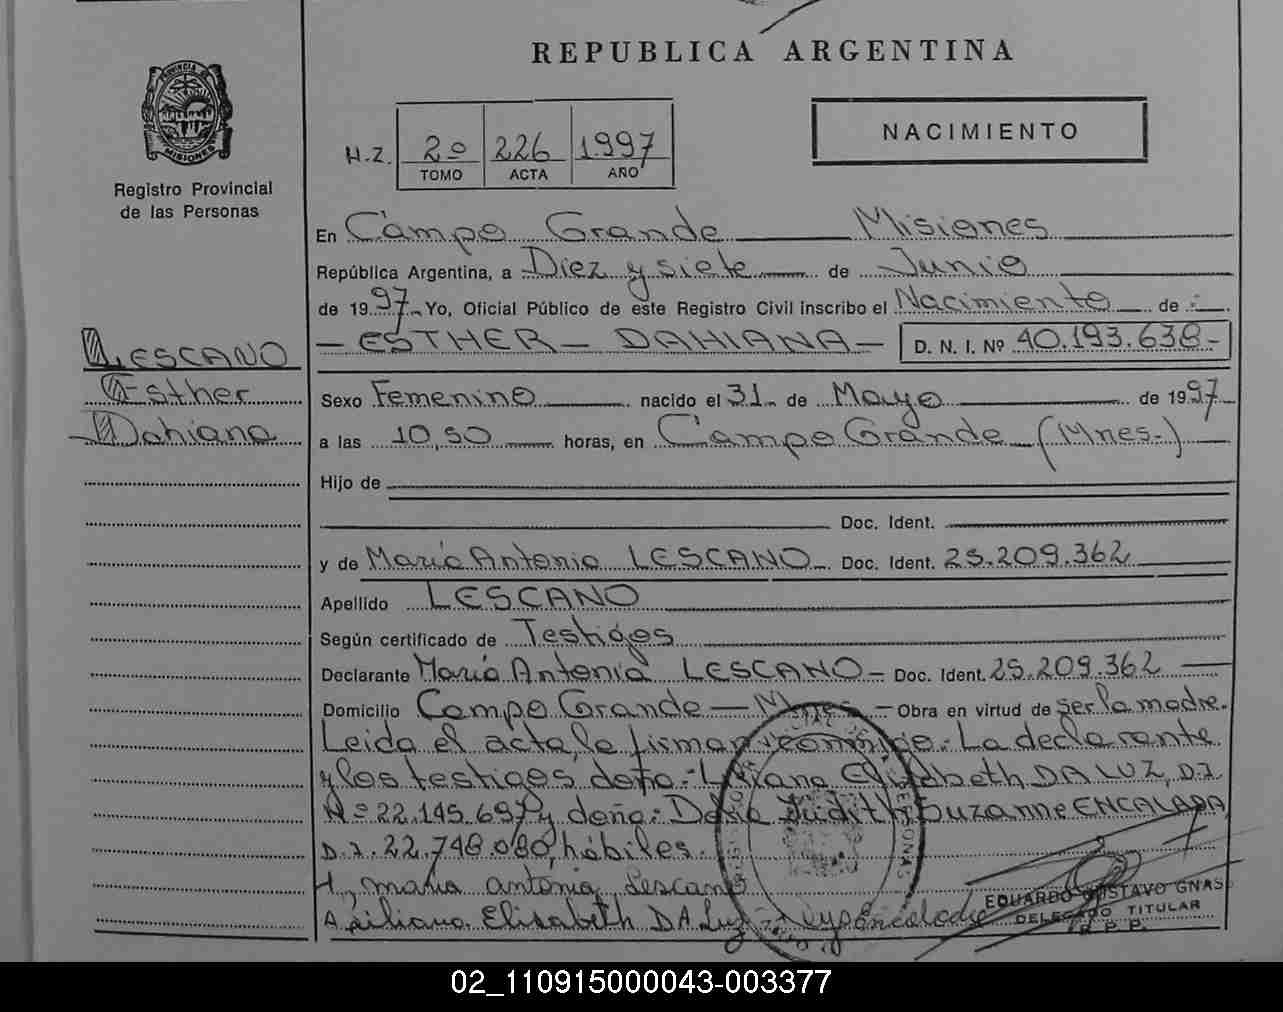 REPUBLICA ARGENTINA
PROVINCIA DE
MISIONES
Registro Provincial
de las Personas
NACIMIENTO
H.Z. 2º 226 1997
TOMO ACTA AÑO
En Campo Grande Misiones
República Argentina, a Diez y siete de Junio
de 1997 Yo, Oficial Público de este Registro Civil inscribo el Nacimiento de :
- ESTHER - DAHIANA - D. N. I. Nº 40.193.638-
LESCANO
Esther
Dahiana
Sexo Femenino nacido el 31 de Mayo de 1997
a las 10,50 horas, en Campo Grande (Mnes.)
Hijo de
Doc. Ident.
y de María Antonia LESCANO Doc. Ident. 25.209.362
Apellido LESCANO
Según certificado de Testigos
Declarante María Antonia LESCANO - Doc. Ident. 25.209.362
Domicilio Campo Grande - Mnes - Obra en virtud de ser la madre.
Leida el acta la firman conmigo.- La declarante
y los testigos doña:- Liliana Elizabeth DA LUZ, D.I.
Nº 22.145.697 y doña: Delia Judith Suzanne ENCALADA
D.I. 22.748.080, hábiles.
maria antonia Lescano
Liliana Elisabeth DA Luz
EDUARDO GUSTAVO GNAS
DELEGADO TITULAR
R.P.P.
02_110915000043-003377